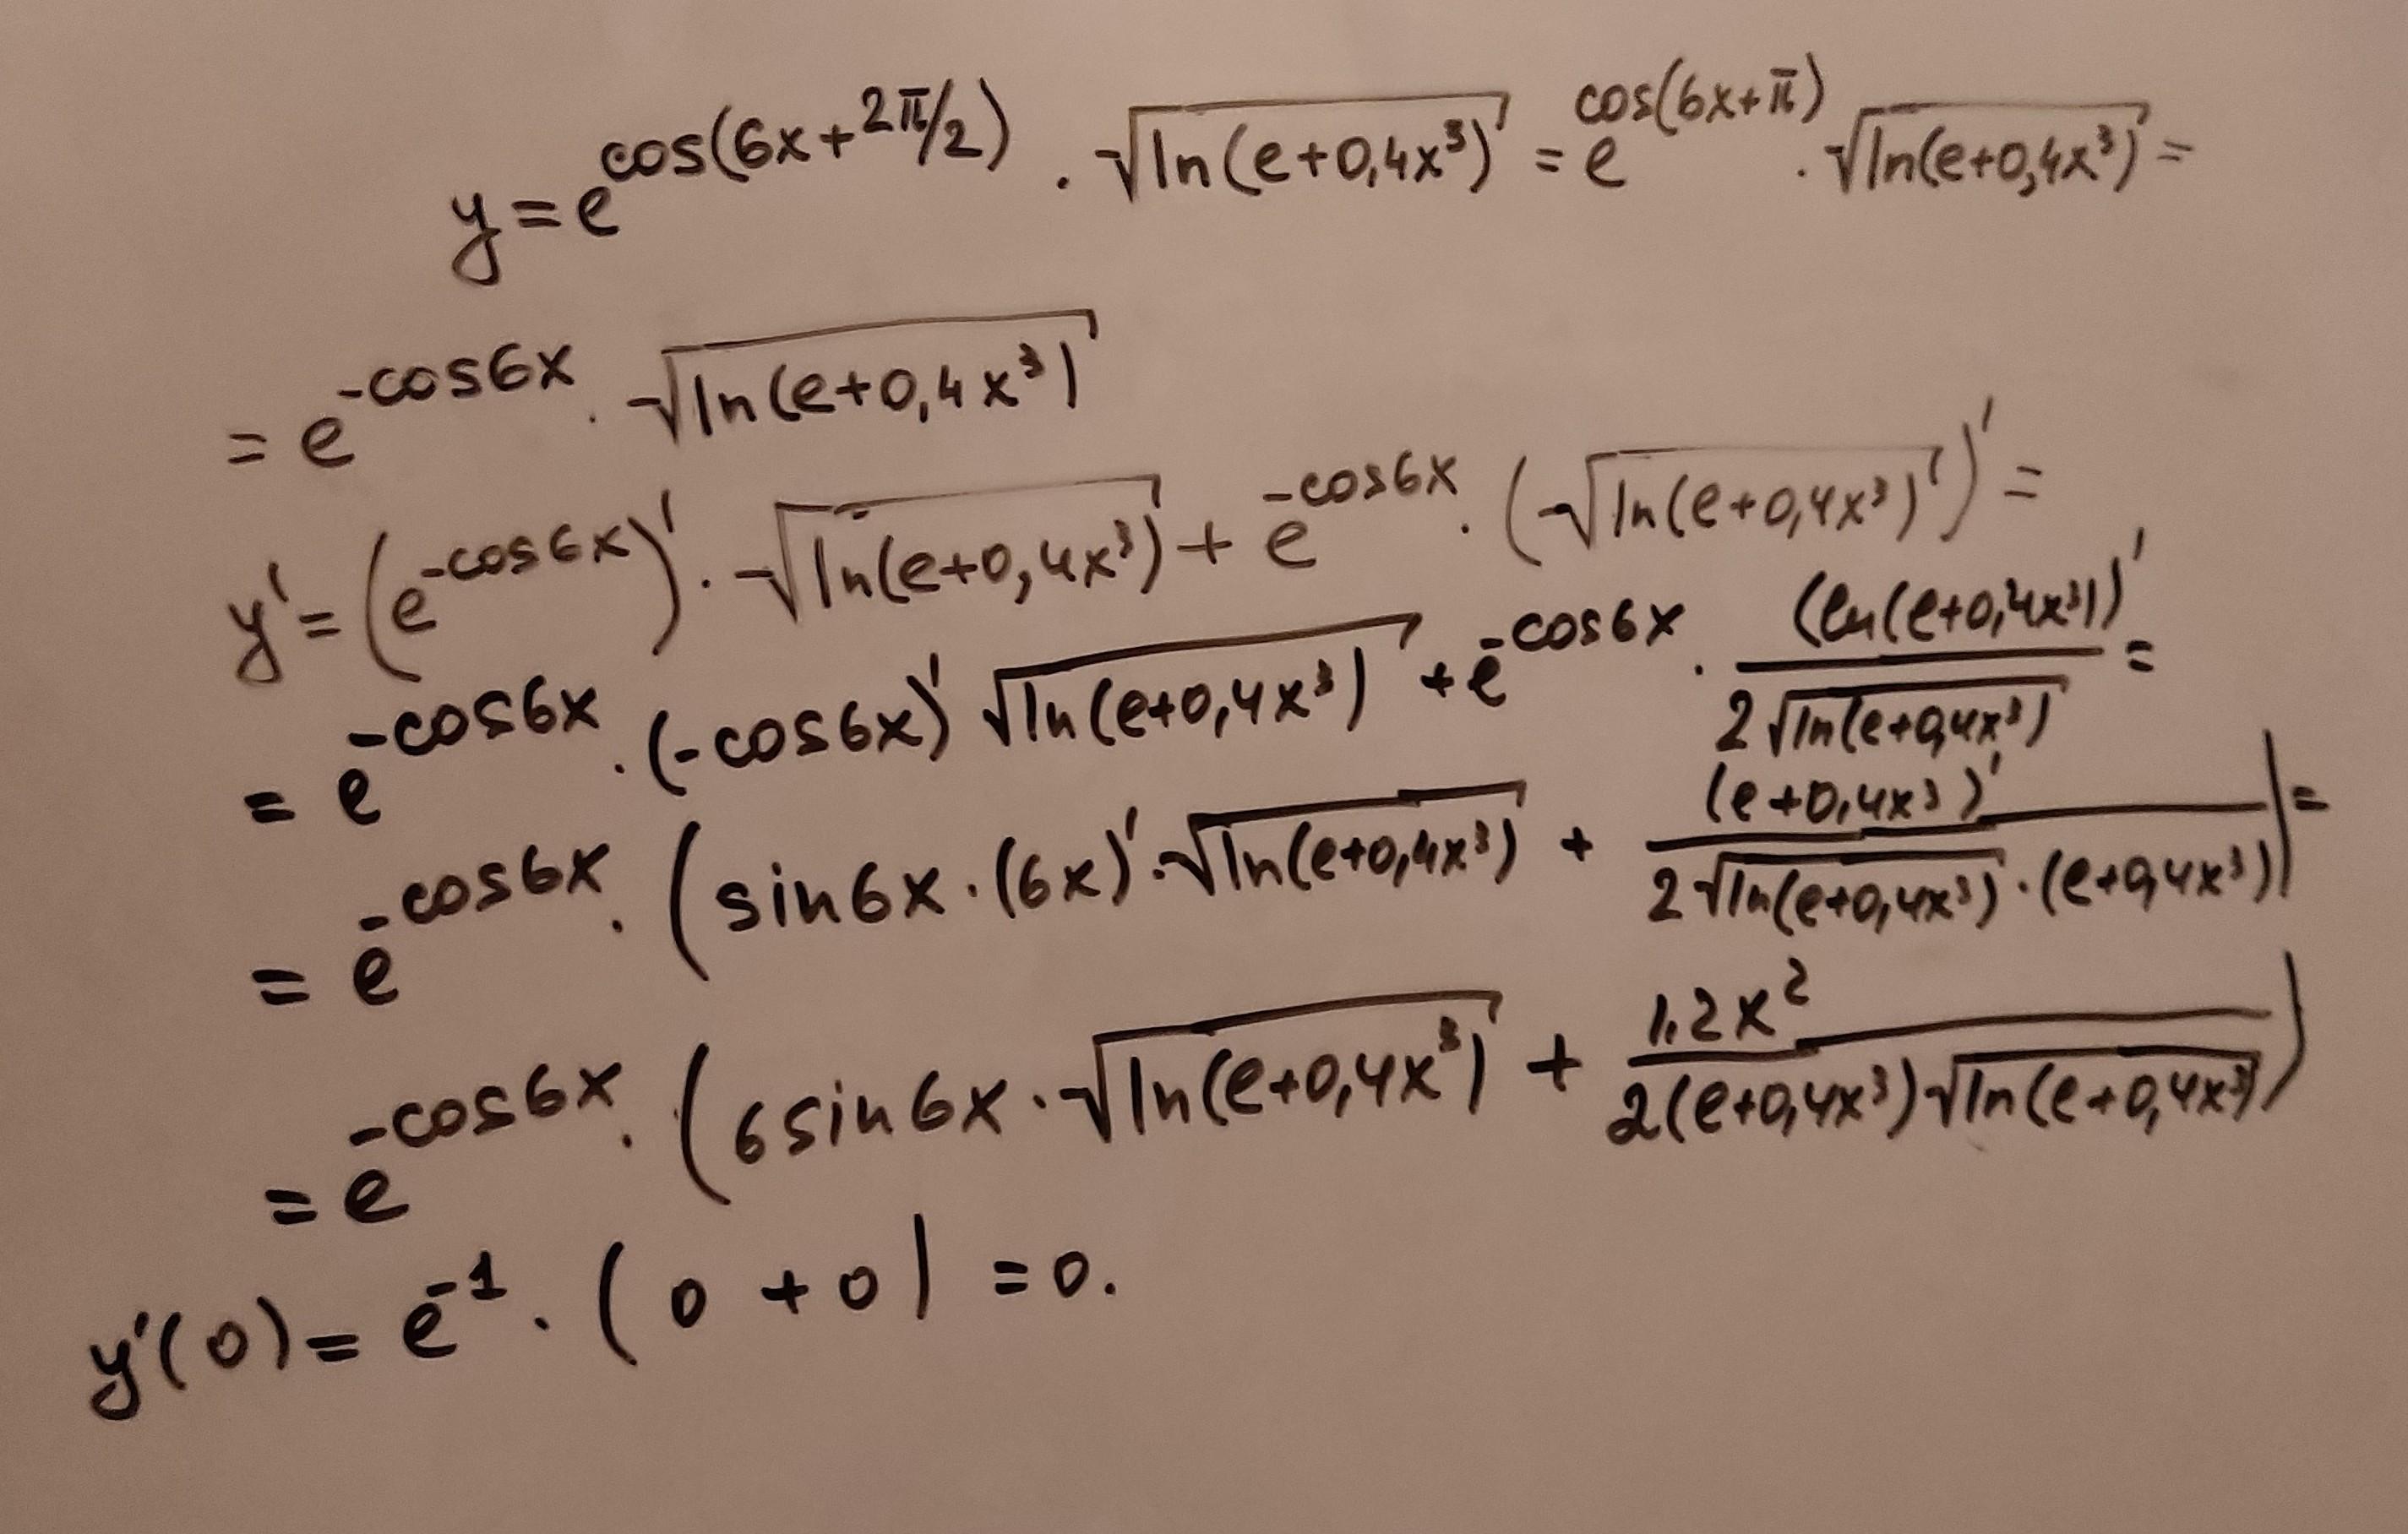 y = e^cos(6x+2π/2) · √ln(e+0,4x³) = e^cos(6x+π) · √ln(e+0,4x³) =
= e^-cos6x · √ln(e+0,4x³)
y' = (e^-cos6x)' · √ln(e+0,4x³) + e^-cos6x · (√ln(e+0,4x³))' =
= e^-cos6x · (-cos6x)' √ln(e+0,4x³) + e^-cos6x · (ln(e+0,4x³))' / 2√ln(e+0,4x³) =
= e^-cos6x · (sin6x · (6x)' · √ln(e+0,4x³) + (e+0,4x³)' / 2√ln(e+0,4x³) · (e+0,4x³)) =
= e^-cos6x · (6sin6x · √ln(e+0,4x³) + 1,2x² / 2(e+0,4x³)√ln(e+0,4x³))
y'(0) = e^-1 · (0 + 0) = 0.